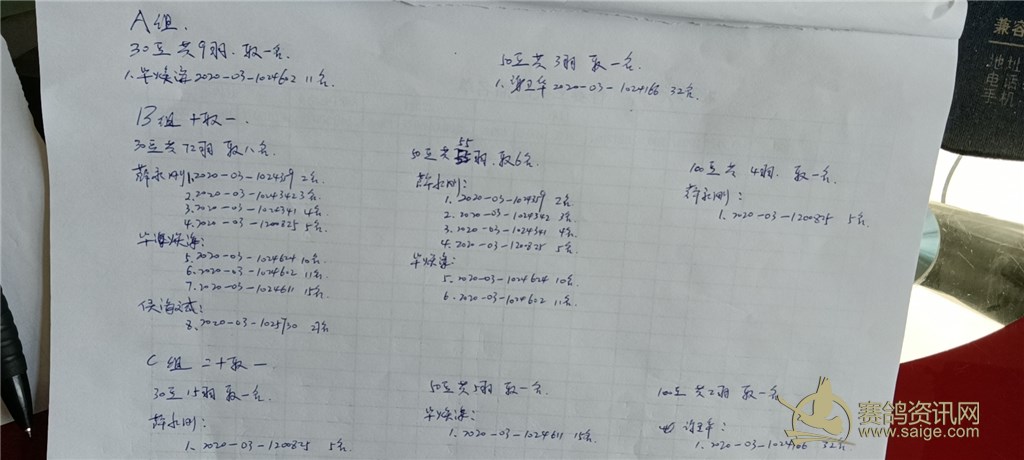 A组.
30豆共9羽.取一名
1.毕焕海2020-03-1024602 11名
50豆共3羽 取一名.
1.谢卫华2020-03-1024166 32名
B组 十取一.
30豆共72羽 取八名
薛永刚1.2020-03-1024359 2名
2.2020-03-1024342 3名
3.2020-03-1024341 4名
4.2020-03-1200825 5名
毕焕海:
5.2020-03-1024624 10名
6.2020-03-1024602 11名
7.2020-03-1024611 15名
8.2020-03-1025730 27名
50豆共55羽.取6名
薛永刚:
1.2020-03-1024359 2名
2.2020-03-1024342 3名
3.2020-03-1024341 4名
4.2020-03-1200825 5名
毕焕海:
5.2020-03-1024624 10名
6.2020-03-1024602 11名
100豆共4羽.取一名.
薛永刚:
1.2020-03-1200825 5名
C组 二十取一
30豆15羽 取一名.
薛永刚:
1.2020-03-1200825 5名
50豆共5羽 取一名
毕焕海:
1.2020-03-1024611 15名
100豆共2羽 取一名
1.2020-03-1024166 32名
兼容
地址
电话
手机
赛鸽资讯网
www.saige.com